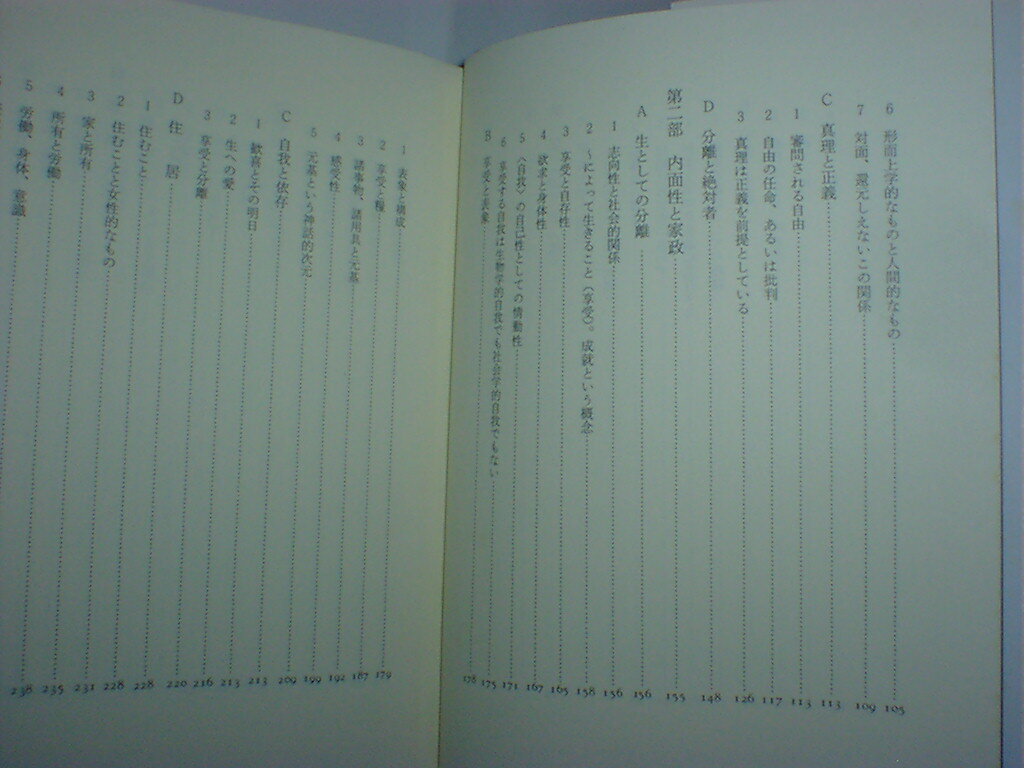 6 形而上学的なものと人間的なもの 105
7 対面、還元しえないこの関係 109
C 真理と正義 113
1 審問される自由 113
2 自由の任命、あるいは批判 117
3 真理は正義を前提としている 126
D 分離と絶対者 148
第二部 内面性と家政 155
A 生としての分離 156
1 志向性と社会的関係 156
2 〜によって生きること(享受)。成就という概念 158
3 享受と自存性 165
4 欲求と身体性 167
5 〈自我〉の自己性としての情動性 171
6 享受する自我は生物学的自我でも社会学的自我でもない 175
B 享受と表象 178
1 表象と構成 179
2 享受と糧 187
3 諸事物、諸用具と元基 192
4 感受性 199
5 元基という神話的次元 209
C 自我と依存 213
1 歓喜とその明日 213
2 生への愛 216
3 享受と分離 220
D 住居 228
1 住むこと 228
2 住むことと女性的なもの 231
3 家と所有 235
4 所有と労働 238
5 労働、身体、意識